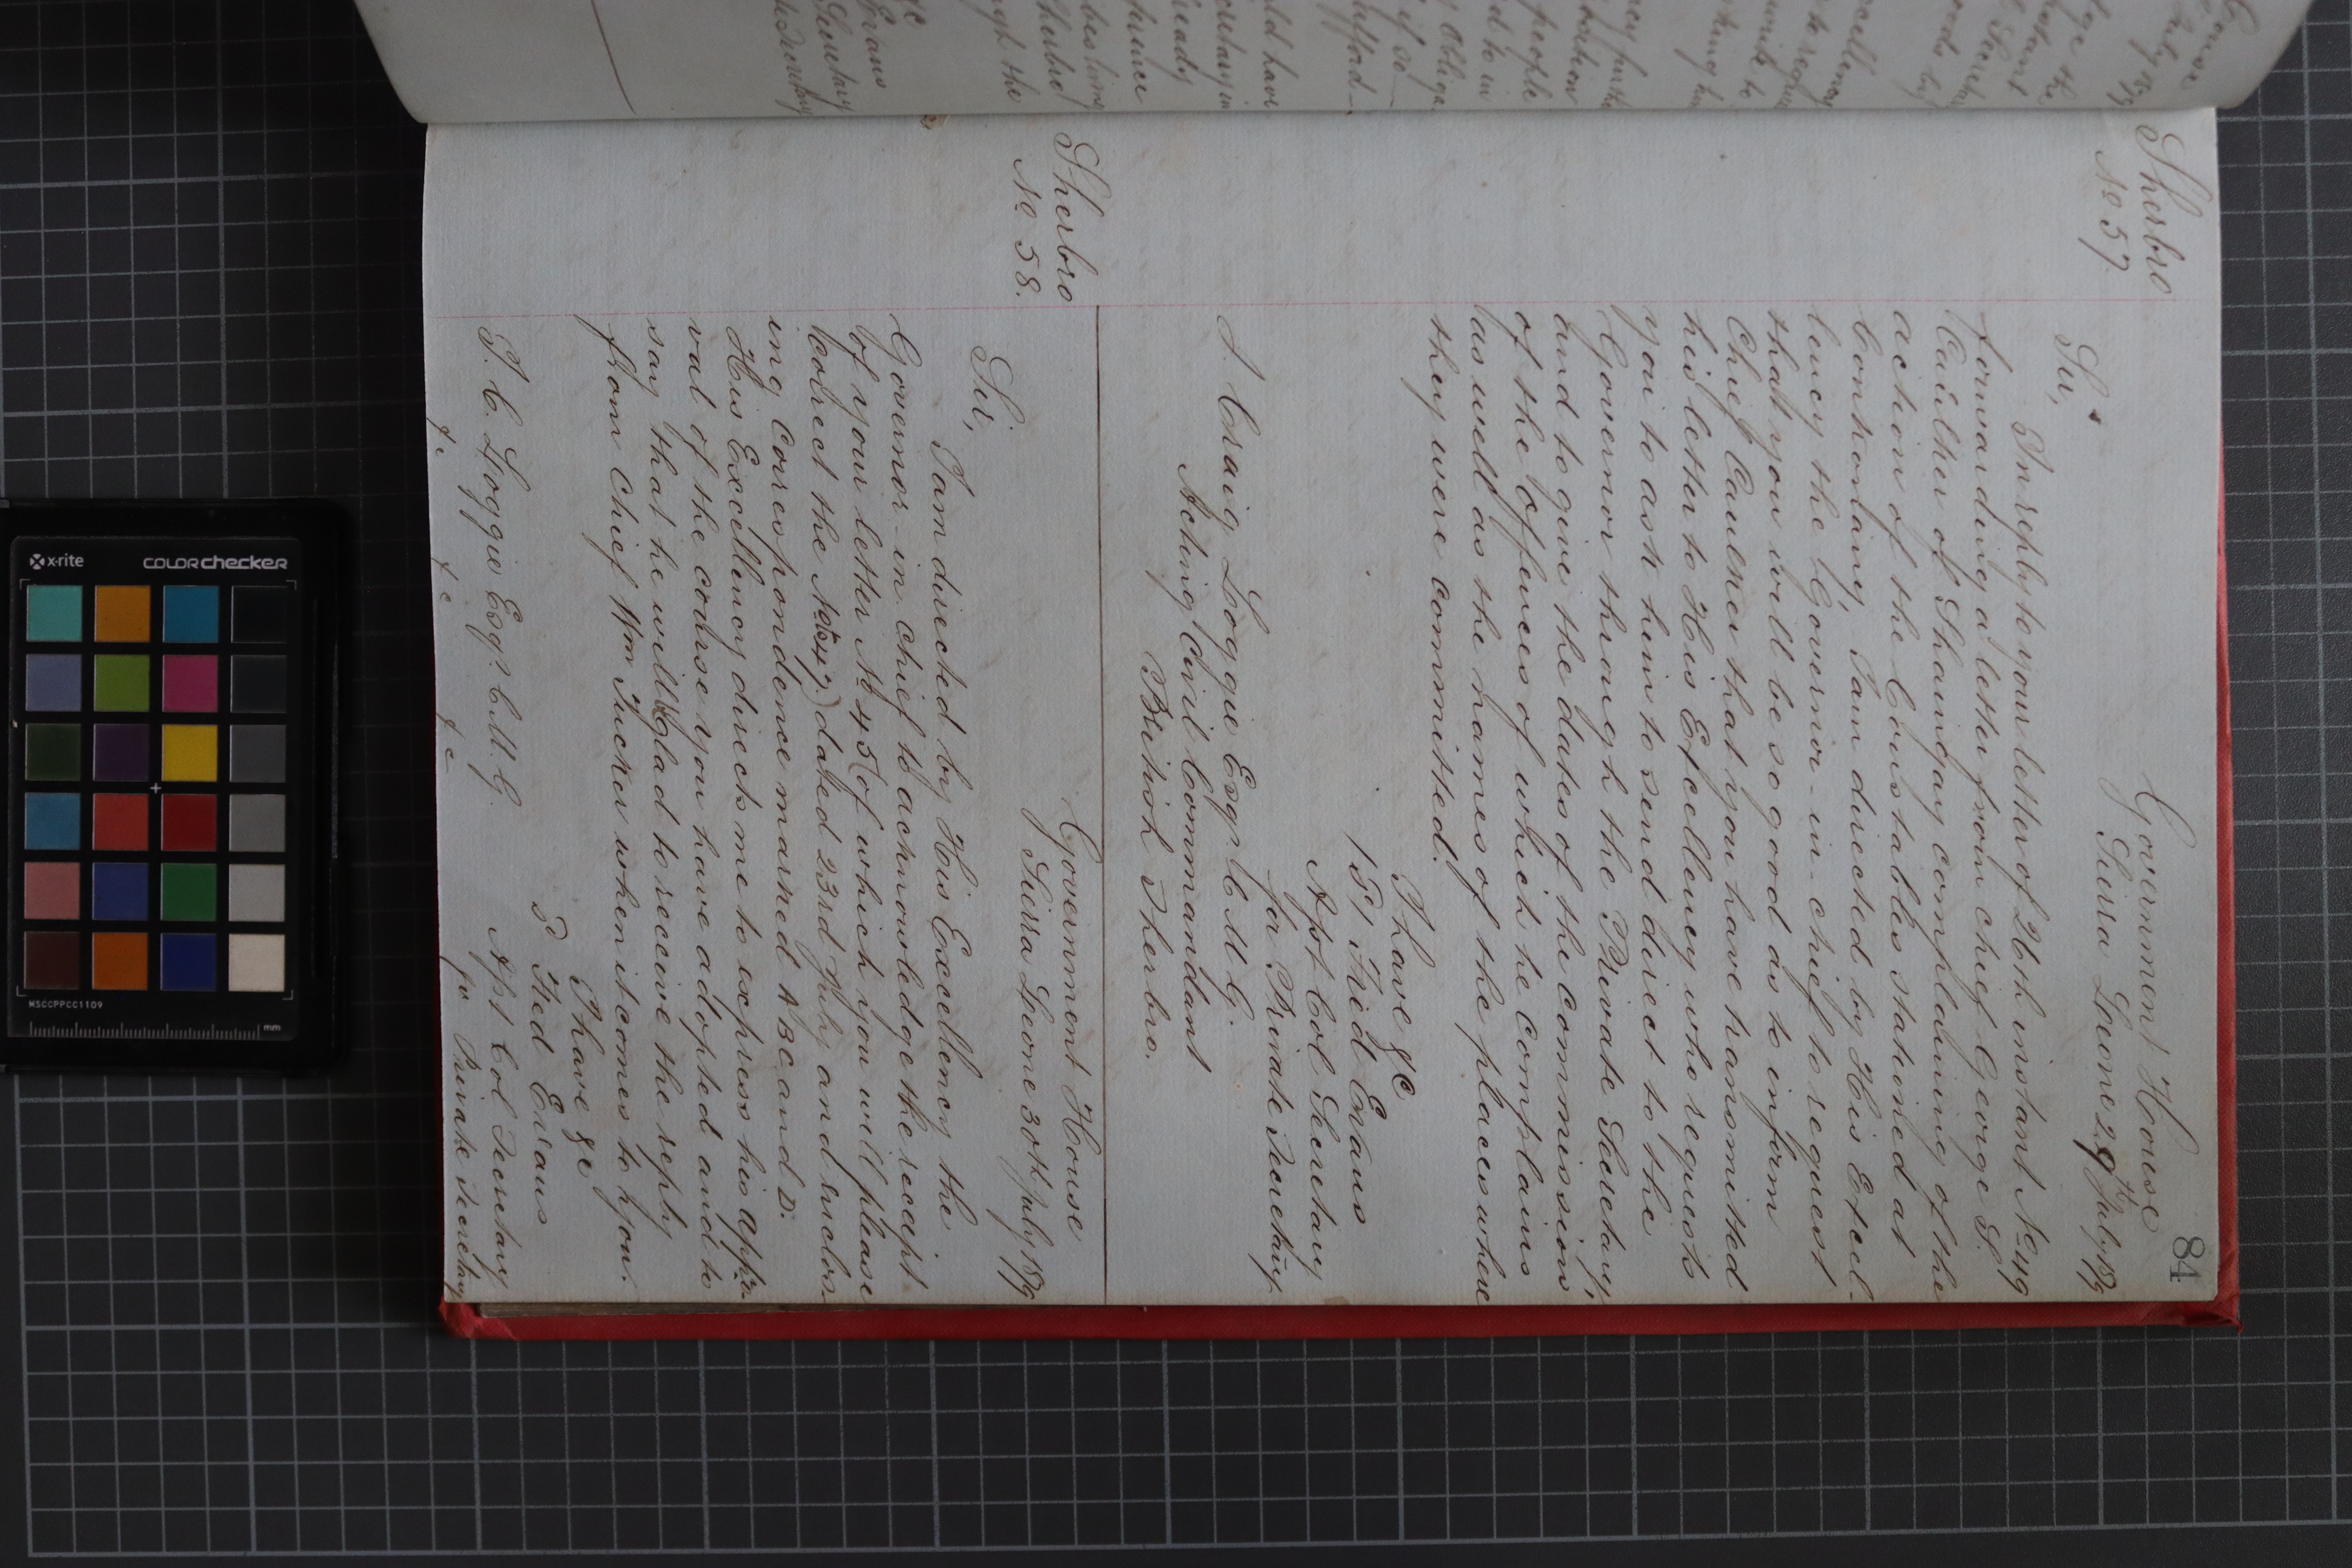 84
Sherbro
No 57.
Government House
Sierra Leone 29th July 18
Sir,
In reply to your letter of 26th instant No 49
forwarding a letter from chief George S.
Caulker of Shaingay complaining of the
action of the Constables stationed at
Bonthontany, I am directed by His Excel-
lency the Governor-in-chief to request
that you will be so good as to inform
Chief Caulker that you have transmitted
his letter to His Excellency who requests
you to ask him to send direct to the
Governor through the Private Secretary,
and to give the dates of the commission
of the offences of which he complains
as well as the names of the places where
they were committed.
I have &c
(S) Fred Evans
Asst Col Secretary
for Private Secretary
J. Craig Loggie Esqr. C.M.G.
Acting Civil Commandant
British Sherbro.
Sherbro
No 58.
Government House
Sierra Leone 30th July 18
Sir,
I am directed by His Excellency the
Governor-in-chief to acknowledge the receipt
of your letter No 45 (of which you will please
correct the No to 47.) dated 23rd July and enclos-
ing correspondence marked A B C and D.
His Excellency directs me to express his appro-
val of the course you have adopted and to
say that he will Glad to receive the reply
from Chief Wm Tucker when it comes to you.
I have &c
Fred Evans
Asst Col Secretary
for Private Secretary
J. C. Loggie Esqr. C.M.G.
&c &c &c
x-rite
colorchecker
MSCCPPCC1109
mm